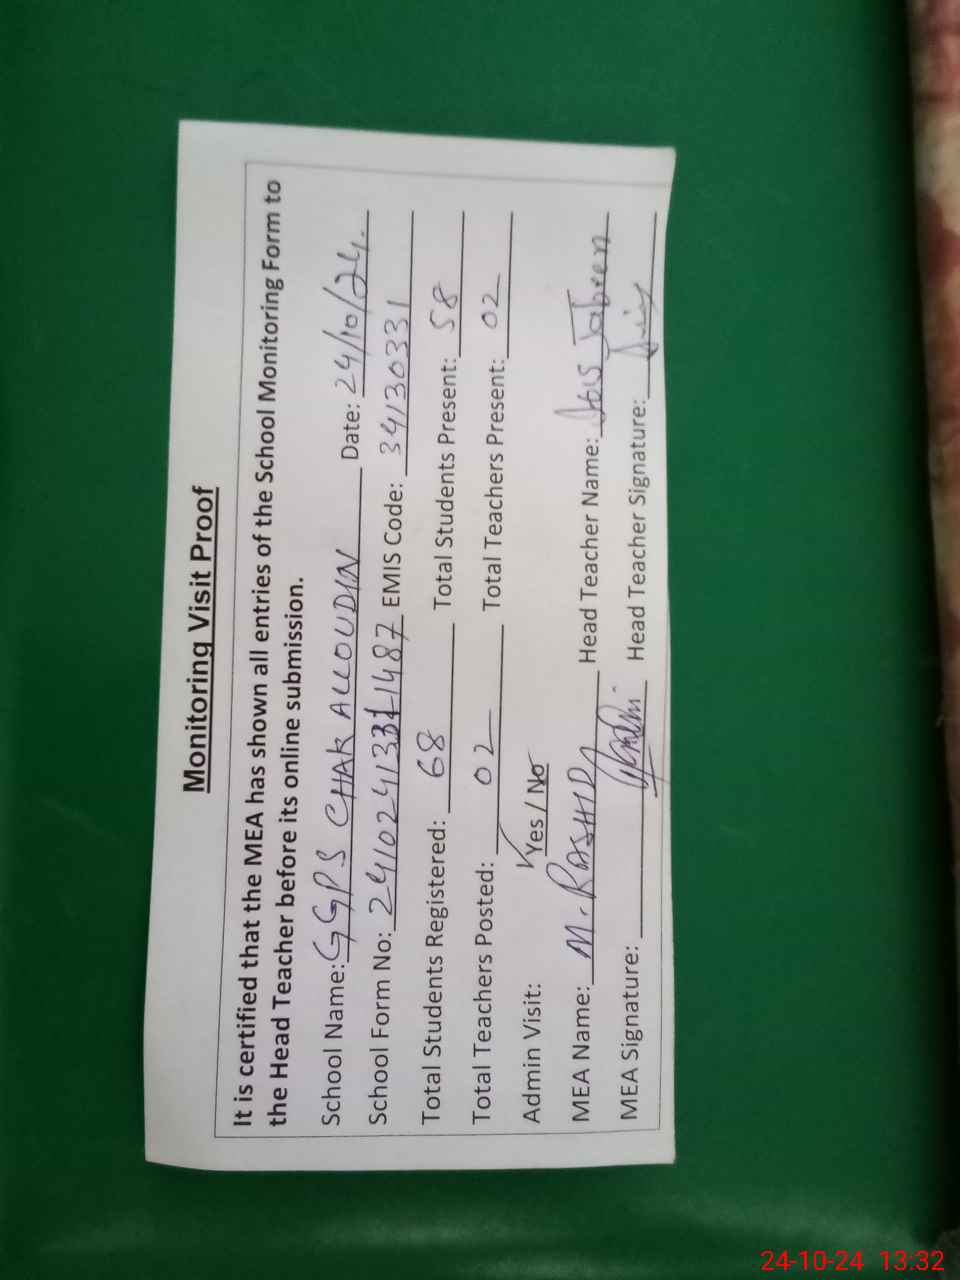 Monitoring Visit Proof
It is certified that the MEA has shown all entries of the School Monitoring Form to
the Head Teacher before its online submission.
School Name: GGPS CHAK ALLOUDIN Date: 24/10/24.
School Form No: EMIS Code: 34130331
Total Students Registered: 68 Total Students Present: 58
Total Teachers Posted: 02 Total Teachers Present: 02
Admin Visit: Yes / No
MEA Name: M. RASHID Head Teacher Name: Jabeen
MEA Signature: Head Teacher Signature:
24-10-24 13:32